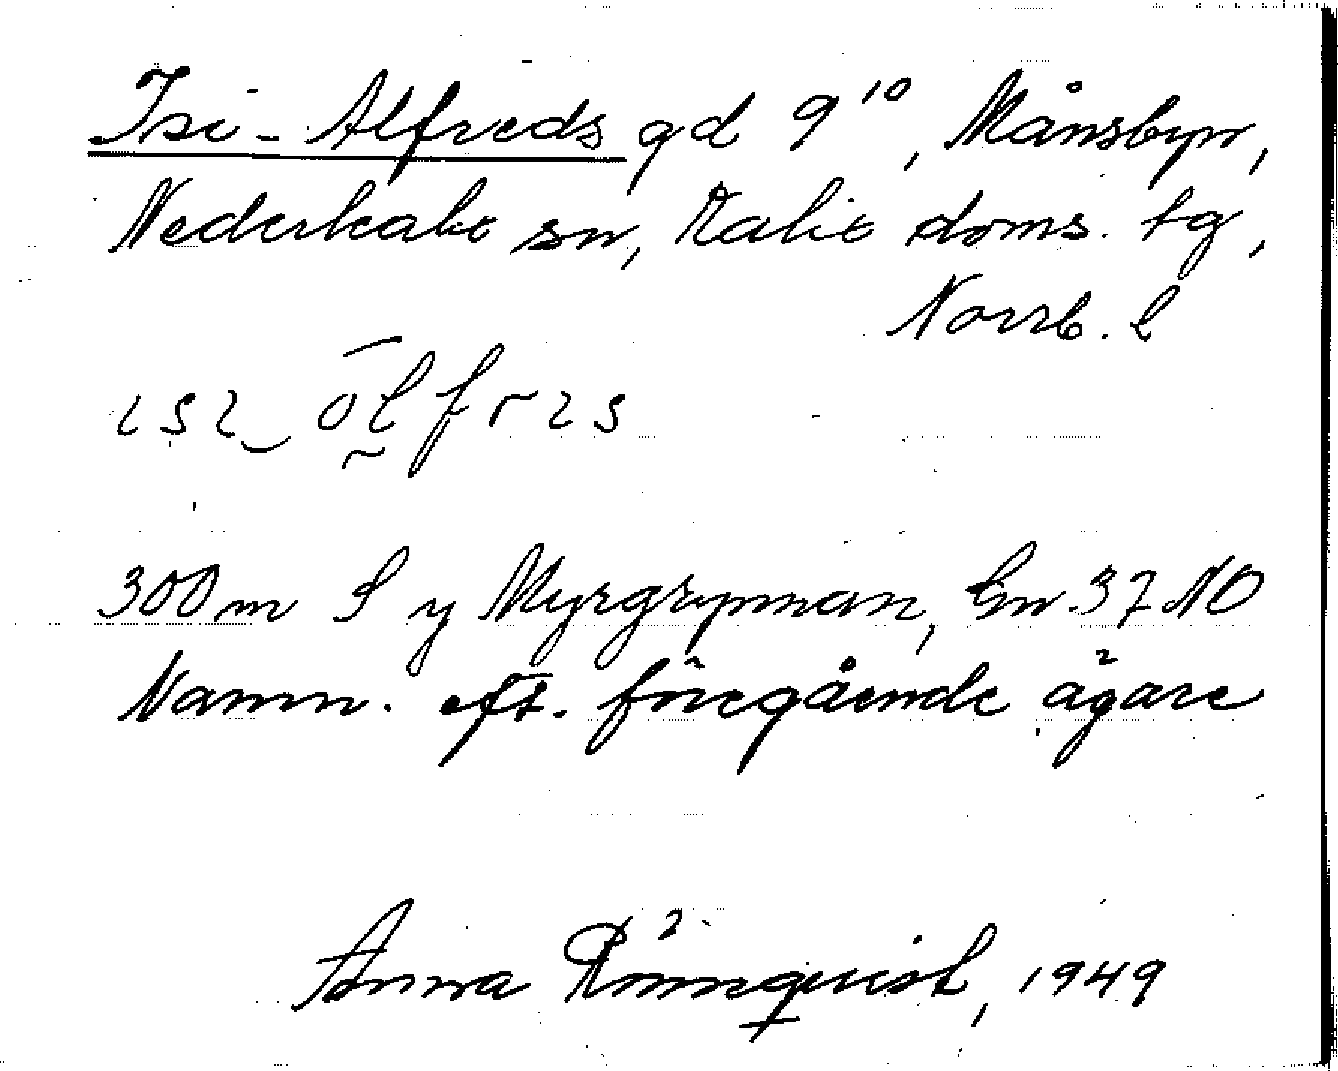 Isi-Alfreds gd 9¹⁰, Månsbyn,
Nederkalix sn, Kalix doms. tg,
Norrb. l
300 m S y Myrgrynnan, En 37 NO
Namn. eft. föregående ägare
Anna Rönnquist, 1949